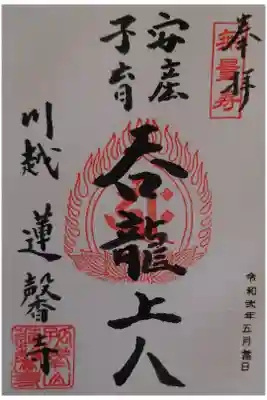 奉拝
無量寿
安産
子育
呑龍上人
川越 蓮馨寺
令和弐年五月蓮日